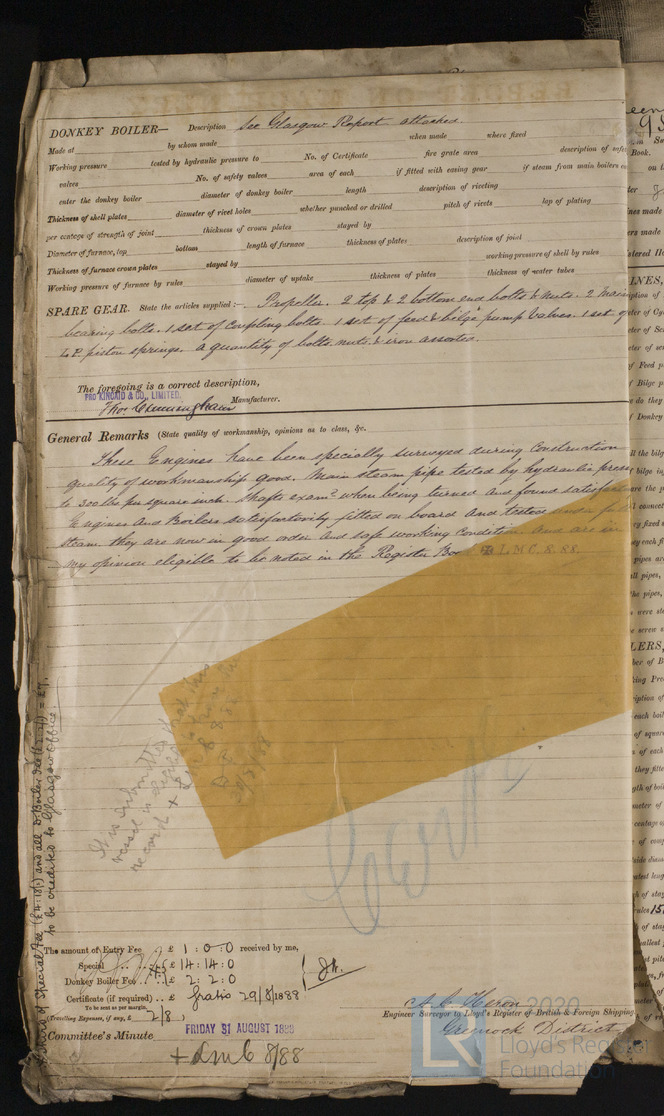 DONKEY BOILER— Description See Glasgow Report attached
Made at by whom made when made where fixed
Working pressure tested by hydraulic pressure to No. of Certificate fire grate area description of safety
valves No. of safety valves area of each if fitted with easing gear if steam from main boilers can
enter the donkey boiler diameter of donkey boiler length description of riveting
Thickness of shell plates diameter of rivet holes whether punched or drilled pitch of rivets lap of plating
per centage of strength of joint thickness of crown plates stayed by
Diameter of furnace, top bottom length of furnace thickness of plates description of joint
Thickness of furnace crown plates stayed by working pressure of shell by rules
Working pressure of furnace by rules diameter of uptake thickness of plates thickness of water tubes
SPARE GEAR. State the articles supplied:— Propeller. 2 top & 2 bottom end bolts & nuts. 2 main
bearing bolts. 1 set of coupling bolts. 1 set of feed & bilge pump valves. 1 set of
L.P. piston springs. a quantity of bolts nuts & iron assorted.
The foregoing is a correct description,
PRO KINCAID & CO., LIMITED.
Thos Cunningham Manufacturer.
General Remarks (State quality of workmanship, opinions as to class, &c.
These Engines have been specially surveyed during construction
quality of workmanship good. Main steam pipe tested by hydraulic press
to 300 lbs per square inch. Shafts examd when being turned and found satisfac
Engines and Boilers satisfactorily fitted on board and tested under full
steam. they are now in good order and safe working condition and are in
my opinion eligible to be noted in the Register Book L.M.C. 8.88.
It is submitted that this
vessel is eligible to have the
record + LMC 8.88
31/8/88
of Special Fee (£4:18/) and all D. Boiler Fee (£2:2/) = £7
to be credited to Glasgow Office.
The amount of Entry Fee £ 1:0:0 received by me,
Special £ 14:14:0
Donkey Boiler Fee £ 2:2:0
Certificate (if required) £ gratis 29/8/1888
To be sent as per margin.
(Travelling Expenses, if any, £ 2/8
Committee's Minute FRIDAY 31 AUGUST 1888
+ LMC 8/88
A. C. Heron
Engineer Surveyor to Lloyd's Register of British & Foreign Shipping.
Greenock District
2020
LR
Lloyd's Register
Foundation